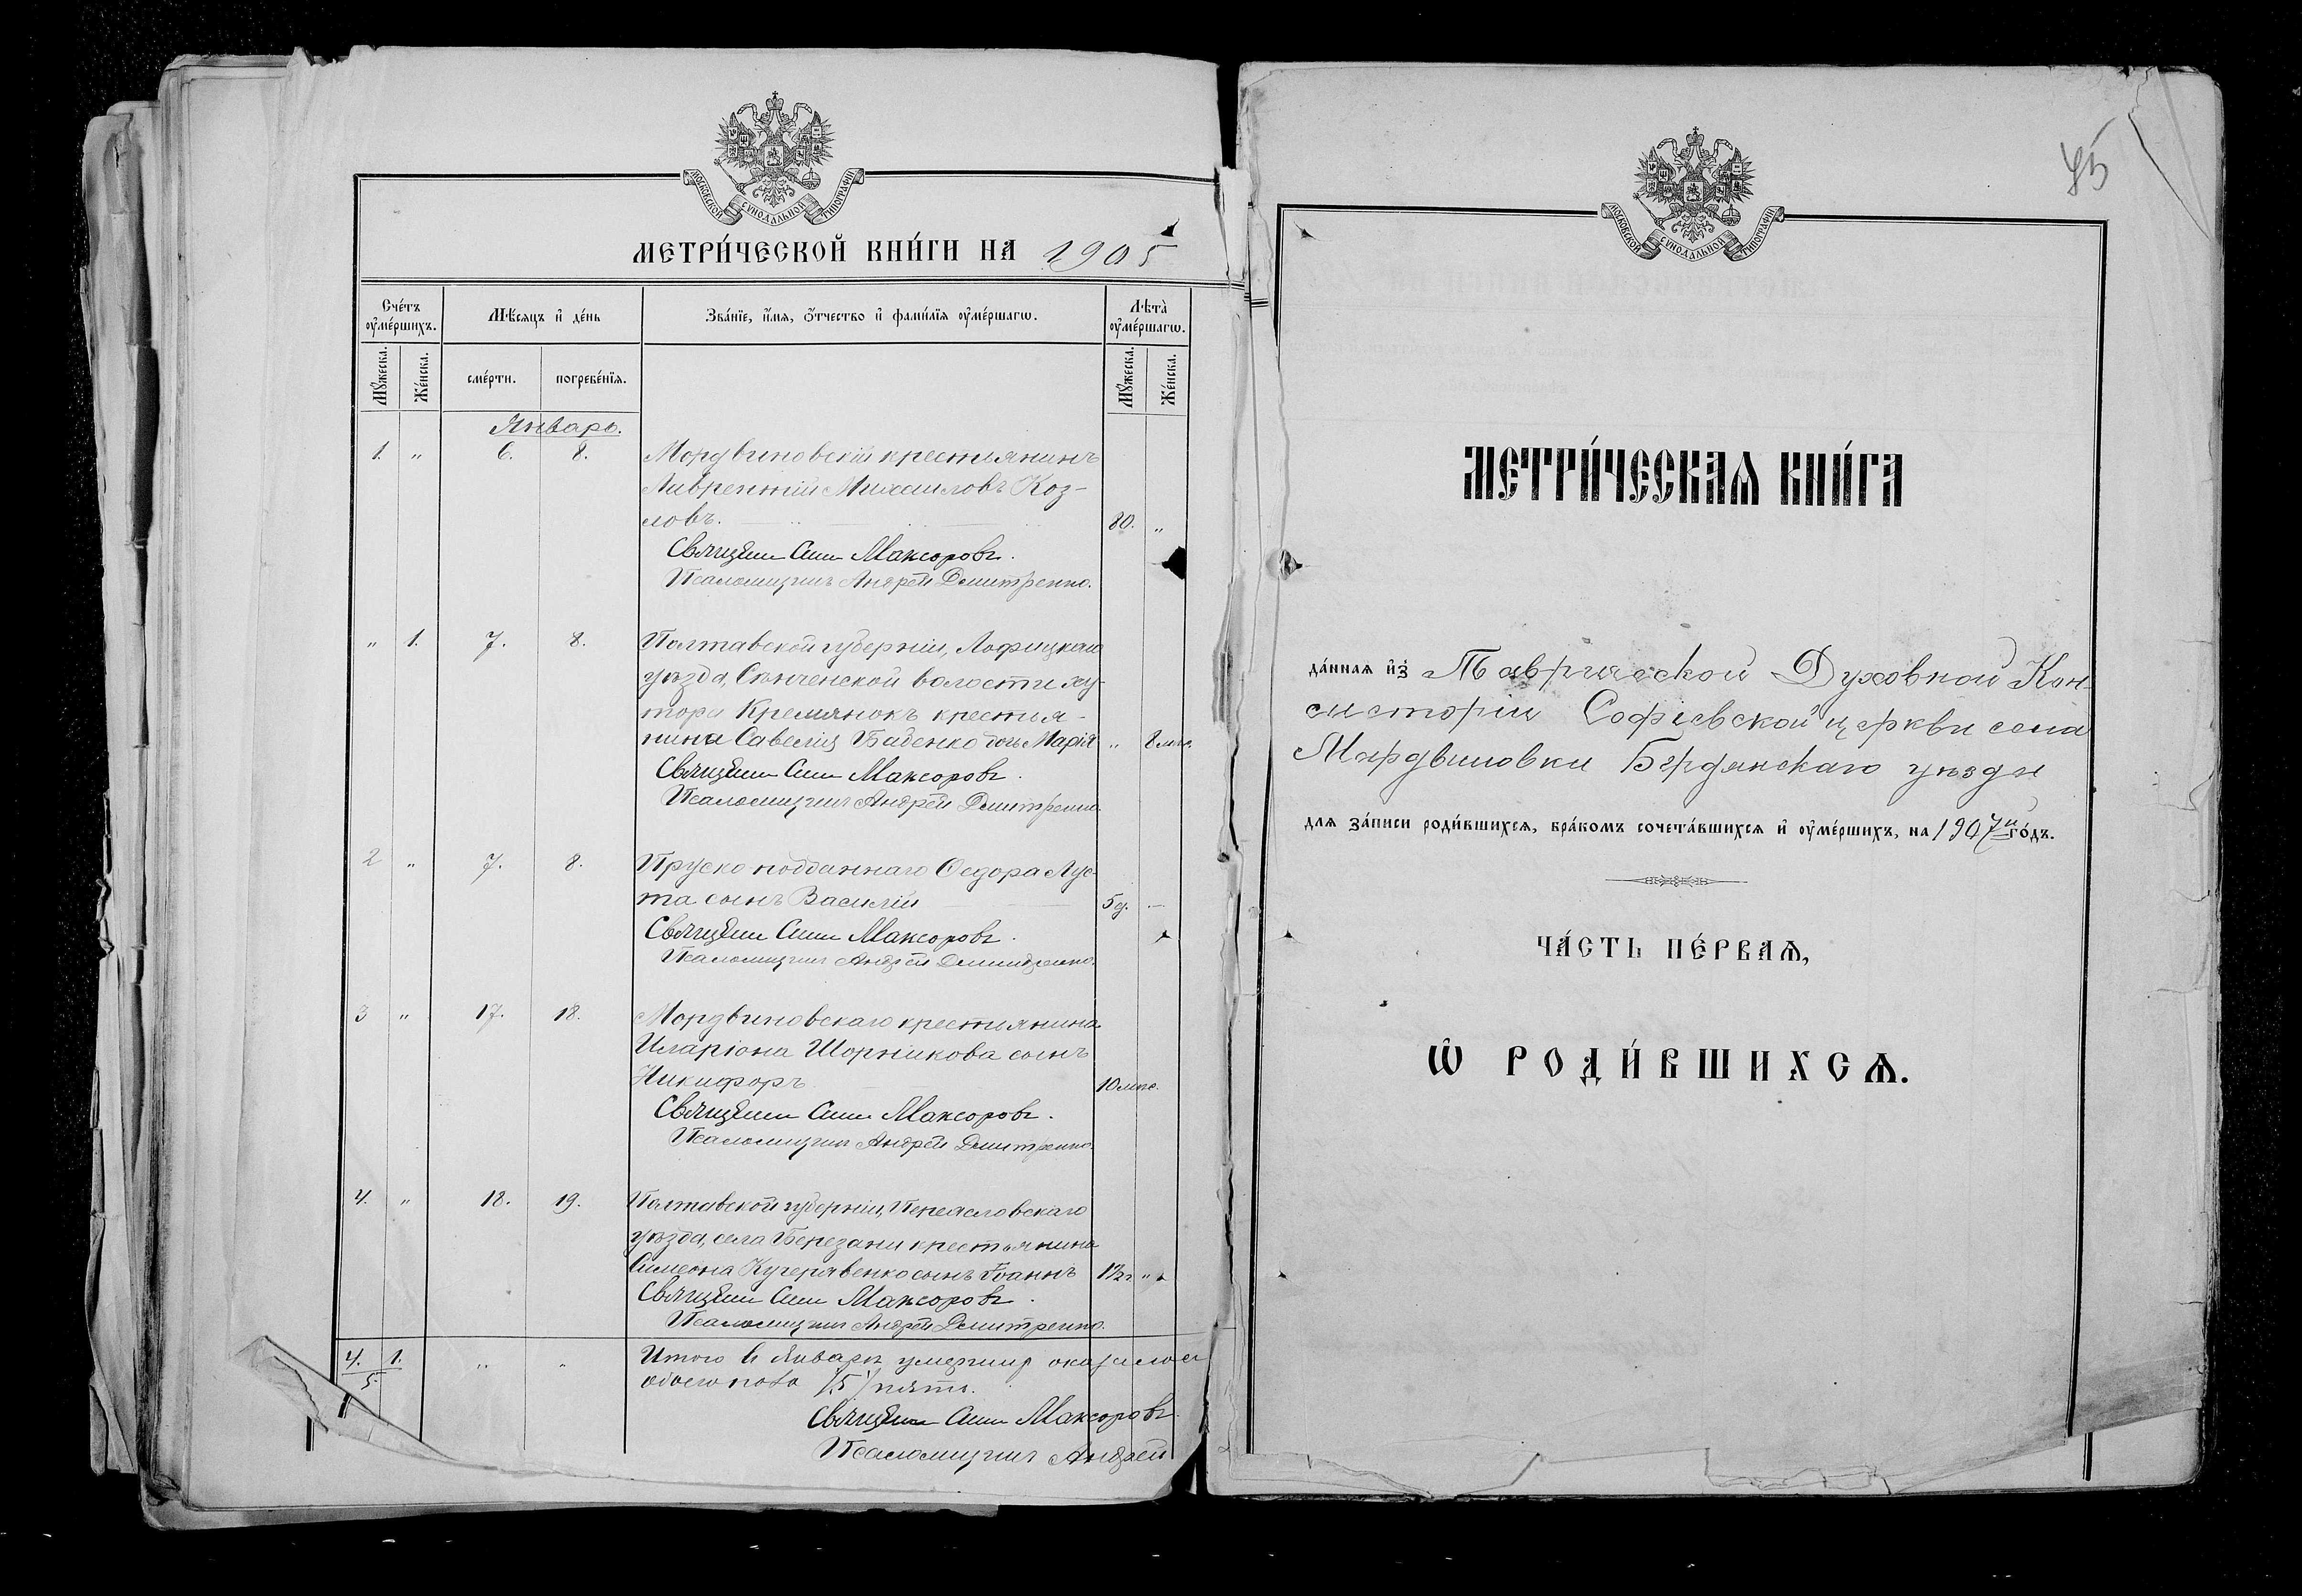 МОСКОВСКОЙ СѴНОДАЛЬНОЙ ТИПОГРАФІИ
МЕТРИ́ЧЕСКОЙ КНИ́ГИ НА 1905
Сче́тъ оу҆ме́ршихъ.
Мѣ́сяцъ и҆ де́нь
Зва́нїе, и҆́мя, ѻ҆́тчество и҆ фами́лїя оу҆ме́ршагѡ.
Лѣта̀ оу҆ме́ршагѡ.
Мꙋ́жеска.
Же́нска.
сме́рти.
погребе́нїя.
Мꙋ́жеска.
Же́нска.
Январь.
1. „ 6. 8. Мордвиновскій крестьянинъ
Лаврентій Михаиловъ Коз-
ловъ. 80. „
Священ Максоровъ.
Псаломщикъ Андрей Дмитренко.
„ 1. 7. 8. Полтавской губерніи, Лофицкаго
уѣзда, Сѣнченской волости ху-
тора Кремянокъ крестья-
нина Савелія Баденко дочь Марія „ 8 мѣс.
Священ Максоровъ.
Псаломщикъ Андрей Дмитренко.
2 „ 7. 8. Пруско подданнаго Ѳедора Лус-
та сынъ Василій 5 д. —
Священ Максоровъ.
Псаломщикъ Андрей Дмитренко.
3 „ 17. 18. Мордвиновскаго крестьянина
Иларіона Шорникова сынъ
Никифоръ 10 мѣс.
Священ Максоровъ.
Псаломщикъ Андрей Дмитренко.
4. „ 18. 19. Полтавской губерніи, Переясловскаго
уѣзда, села Березани крестьянина
Симеона Кучерявенко сынъ Іоаннъ 1½ г. „
Священ Максоровъ.
Псаломщикъ Андрей Дмитренко.
4. 1. „ „ Итого въ Январѣ умершихъ оказалось
5. обоего пола /5/ пять.
Священ Максоровъ.
Псаломщикъ Андрей
МОСКОВСКОЙ СѴНОДАЛЬНОЙ ТИПОГРАФІИ
МЕТРИ́ЧЕСКАѦ КНИ́ГА
да́нная и҆з̾ Таврической Духовной Кон-
систоріи Софіевской церкви села
Мордвиновки Бердянскаго уѣзда
для за́писи роди́вшихся, бра́комъ сочета́вшихся и҆ оу҆ме́ршихъ, на 1907й го́дъ.
ЧА́СТЬ ПЕ́РВАѦ,
Ѡ҆ РОДИ́ВШИХСѦ.